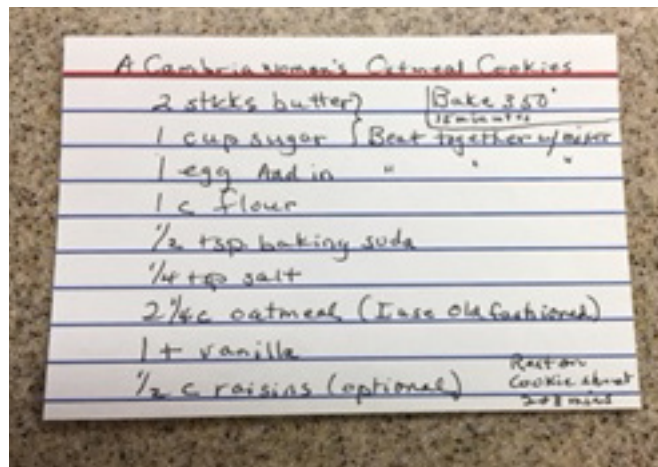 A Cambria women's Oatmeal Cookies
2 sticks butter } Bake 350°
15 minutes
1 cup sugar } Beat together w/mixer
1 egg Add in " " "
1 c flour
1/2 tsp baking soda
1/4 tsp salt
2 1/4 c oatmeal (I use old fashioned)
1 t vanilla
1/2 c raisins (optional)
Rest on
Cookie sheet
mins